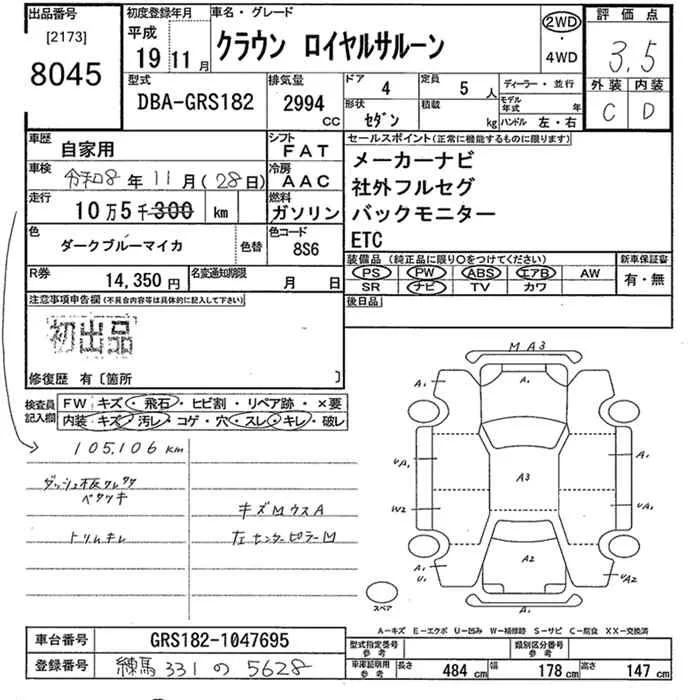 出品番号
[2173]
8045
初度登録年月
平成
19 11 月
車名・グレード
クラウン ロイヤルサルーン
2WD
・
4WD
評価点
3.5
外装 内装
C D
型式
DBA-GRS182
排気量
2994
CC
ドア 4
形状 セダン
定員 5 人
積載 kg
ディーラー・並行
モデル年式 年
ハンドル 左・右
車歴 自家用
シフト FAT
車検 令和8年 11月(28日)
冷房 AAC
走行 10万5千300 km
燃料 ガソリン
色 ダークブルーマイカ 色替
色コード 8S6
R券 14,350円
名変通知期限 月 日
セールスポイント(正常に機能するものに限ります)
メーカーナビ
社外フルセグ
バックモニター
ETC
装備品(純正品に限り○をつけてください)
PS PW ABS エアB AW
SR ナビ TV カワ
新車保証書
有・無
後日品
注意事項申告欄(不具合内容等は具体的に記入して下さい)
初出品
修復歴 有〔箇所 〕
検査員記入欄
FW キズ・飛石・ヒビ割・リペア跡・×要
内装・キズ・汚レ・コゲ・穴・スレ・キレ・破レ
105,106 km
ダッシュ板
ベタツキ
トリムキレ
キズMウスA
左センターピラーM
MA3
A1
A1
A1
UA1
A3
A1
W2
UA1
A2
A1
U1
UA2
A1
スペア
A－キズ E－エクボ U－凹み W－補修跡 S－サビ C－腐食 XX－交換済
車台番号 GRS182-1047695
登録番号 練馬 331 の 5628
型式指定番号 参考
類別区分番号 参考
車庫証明用 参考
長さ 484 cm 幅 178 cm 高さ 147 cm